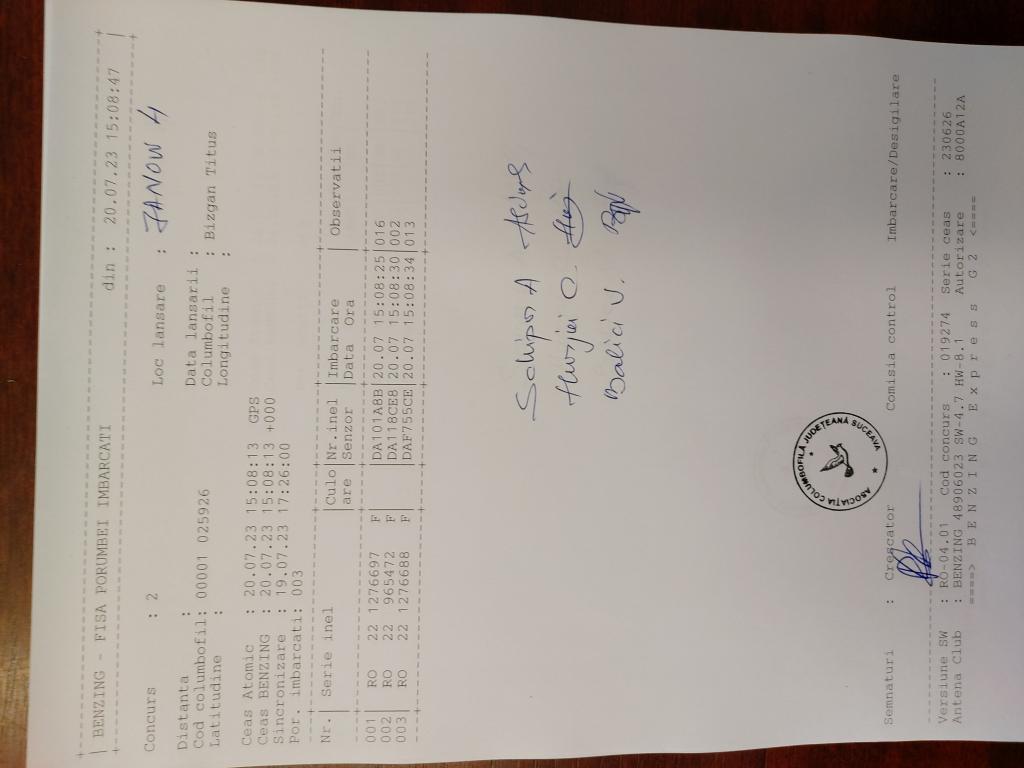 BENZING - FISA PORUMBEI IMBARCATI din : 20.07.23 15:08:47
Concurs : 2 Loc lansare : JANOW 4
Distanta : Data lansarii :
Cod columbofil: 00001 025926 Columbofil : Bizgan Titus
Latitudine : Longitudine :
Ceas Atomic : 20.07.23 15:08:13 GPS
Ceas BENZING : 20.07.23 15:08:13 +000
Sincronizare : 19.07.23 17:26:00
Por. imbarcati: 003
Nr.| Serie inel |Culo|Nr.inel |Imbarcare | Observatii
|are |Senzor |Data Ora |
001 | RO 22 1276697 F | |DA101A8B|20.07 15:08:25|016
002 | RO 22 965472 F | |DA118CE8|20.07 15:08:30|002
003 | RO 22 1276688 F | |DAF755CE|20.07 15:08:34|013
Schipor A
Balici V.
ASOCIAȚIA COLUMBOFILĂ JUDEȚEANĂ SUCEAVA
Semnaturi : Crescator Comisia control Imbarcare/Desigilare
Versiune SW : RO-04.01 Cod concurs : 019274 Serie ceas : 230626
Antena Club : BENZING 48906023 SW-4.7 HW-8.1 Autorizare : 8000A12A
====> B E N Z I N G E x p r e s s G 2 <====